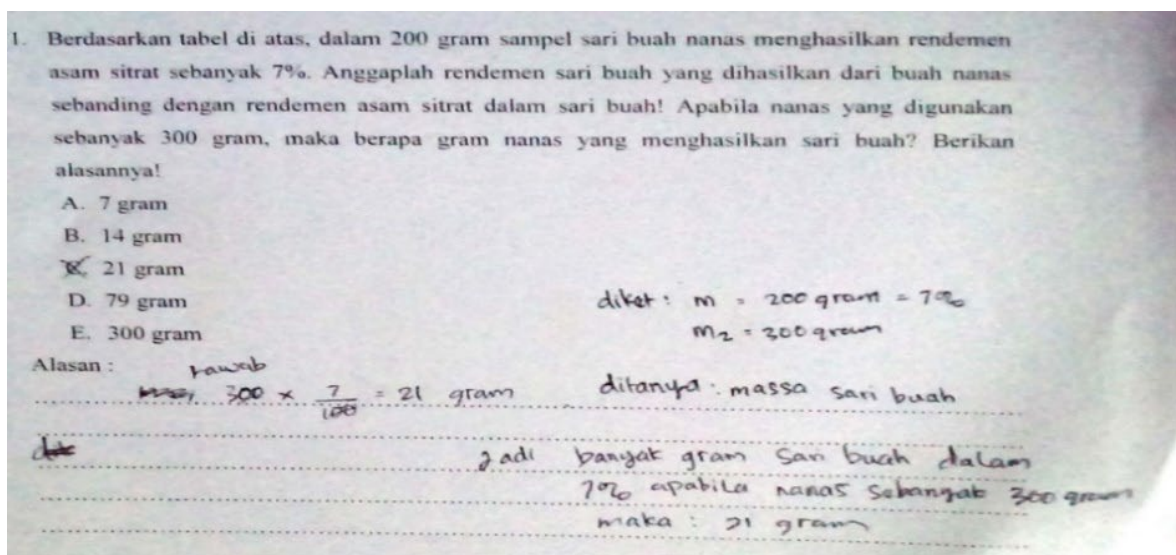 1. Berdasarkan tabel di atas, dalam 200 gram sampel sari buah nanas menghasilkan rendemen
asam sitrat sebanyak 7%. Anggaplah rendemen sari buah yang dihasilkan dari buah nanas
sebanding dengan rendemen asam sitrat dalam sari buah! Apabila nanas yang digunakan
sebanyak 300 gram, maka berapa gram nanas yang menghasilkan sari buah? Berikan
alasannya!
A. 7 gram
B. 14 gram
C. 21 gram
D. 79 gram
E. 300 gram
diket : m = 200 gram = 7%
m2 = 300 gram
Alasan :
Jawab
300 x 7/100 = 21 gram
ditanya : massa sari buah
Jadi banyak gram sari buah dalam
7% apabila nanas sebanyak 300 gram
maka : 21 gram